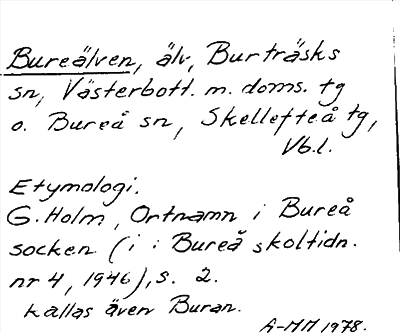 Bureälven, älv, Burträsks
sn, Västerbott. m. doms. tg
o. Bureå sn, Skellefteå tg,
Vb.l.
Etymologi.
G. Holm, Ortnamn i Bureå
socken (i: Bureå skoltidn.
nr 4, 1946), s. 2.
kallas även Buran.
A-MM 1978.